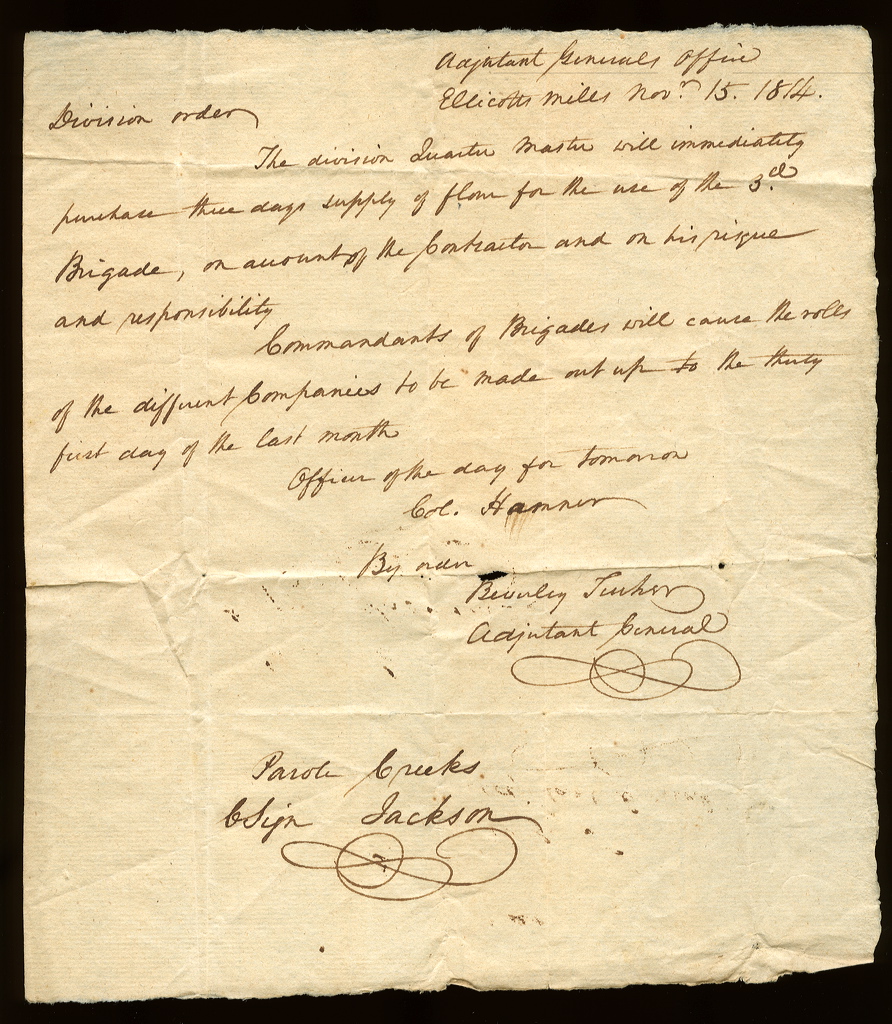 Adjutant Generals Office
Ellicotts Mills Novr. 15. 1814.
Division order
The division Quarter Master will immediately
purchase three days supply of flour for the use of the 3d.
Brigade, on account of the Contractor and on his risque
and responsibility
Commandants of Brigades will cause the rolls
of the different Companies to be made out up to the thirty
first day of the last month
Officer of the day for tomorrow
Col. Hamner
By order
Beverley Tucker
Adjutant General
Parole Creeks
CSign Jackson